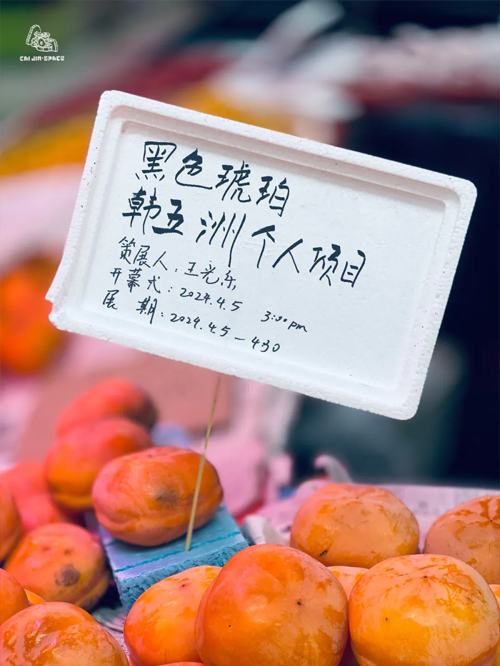 CAI JIN·SPACE
黑色琥珀
韩五洲个人项目
策展人：王光乐
开幕式：2024.4.5 3:00pm
展 期：2024.4.5 — 4.30